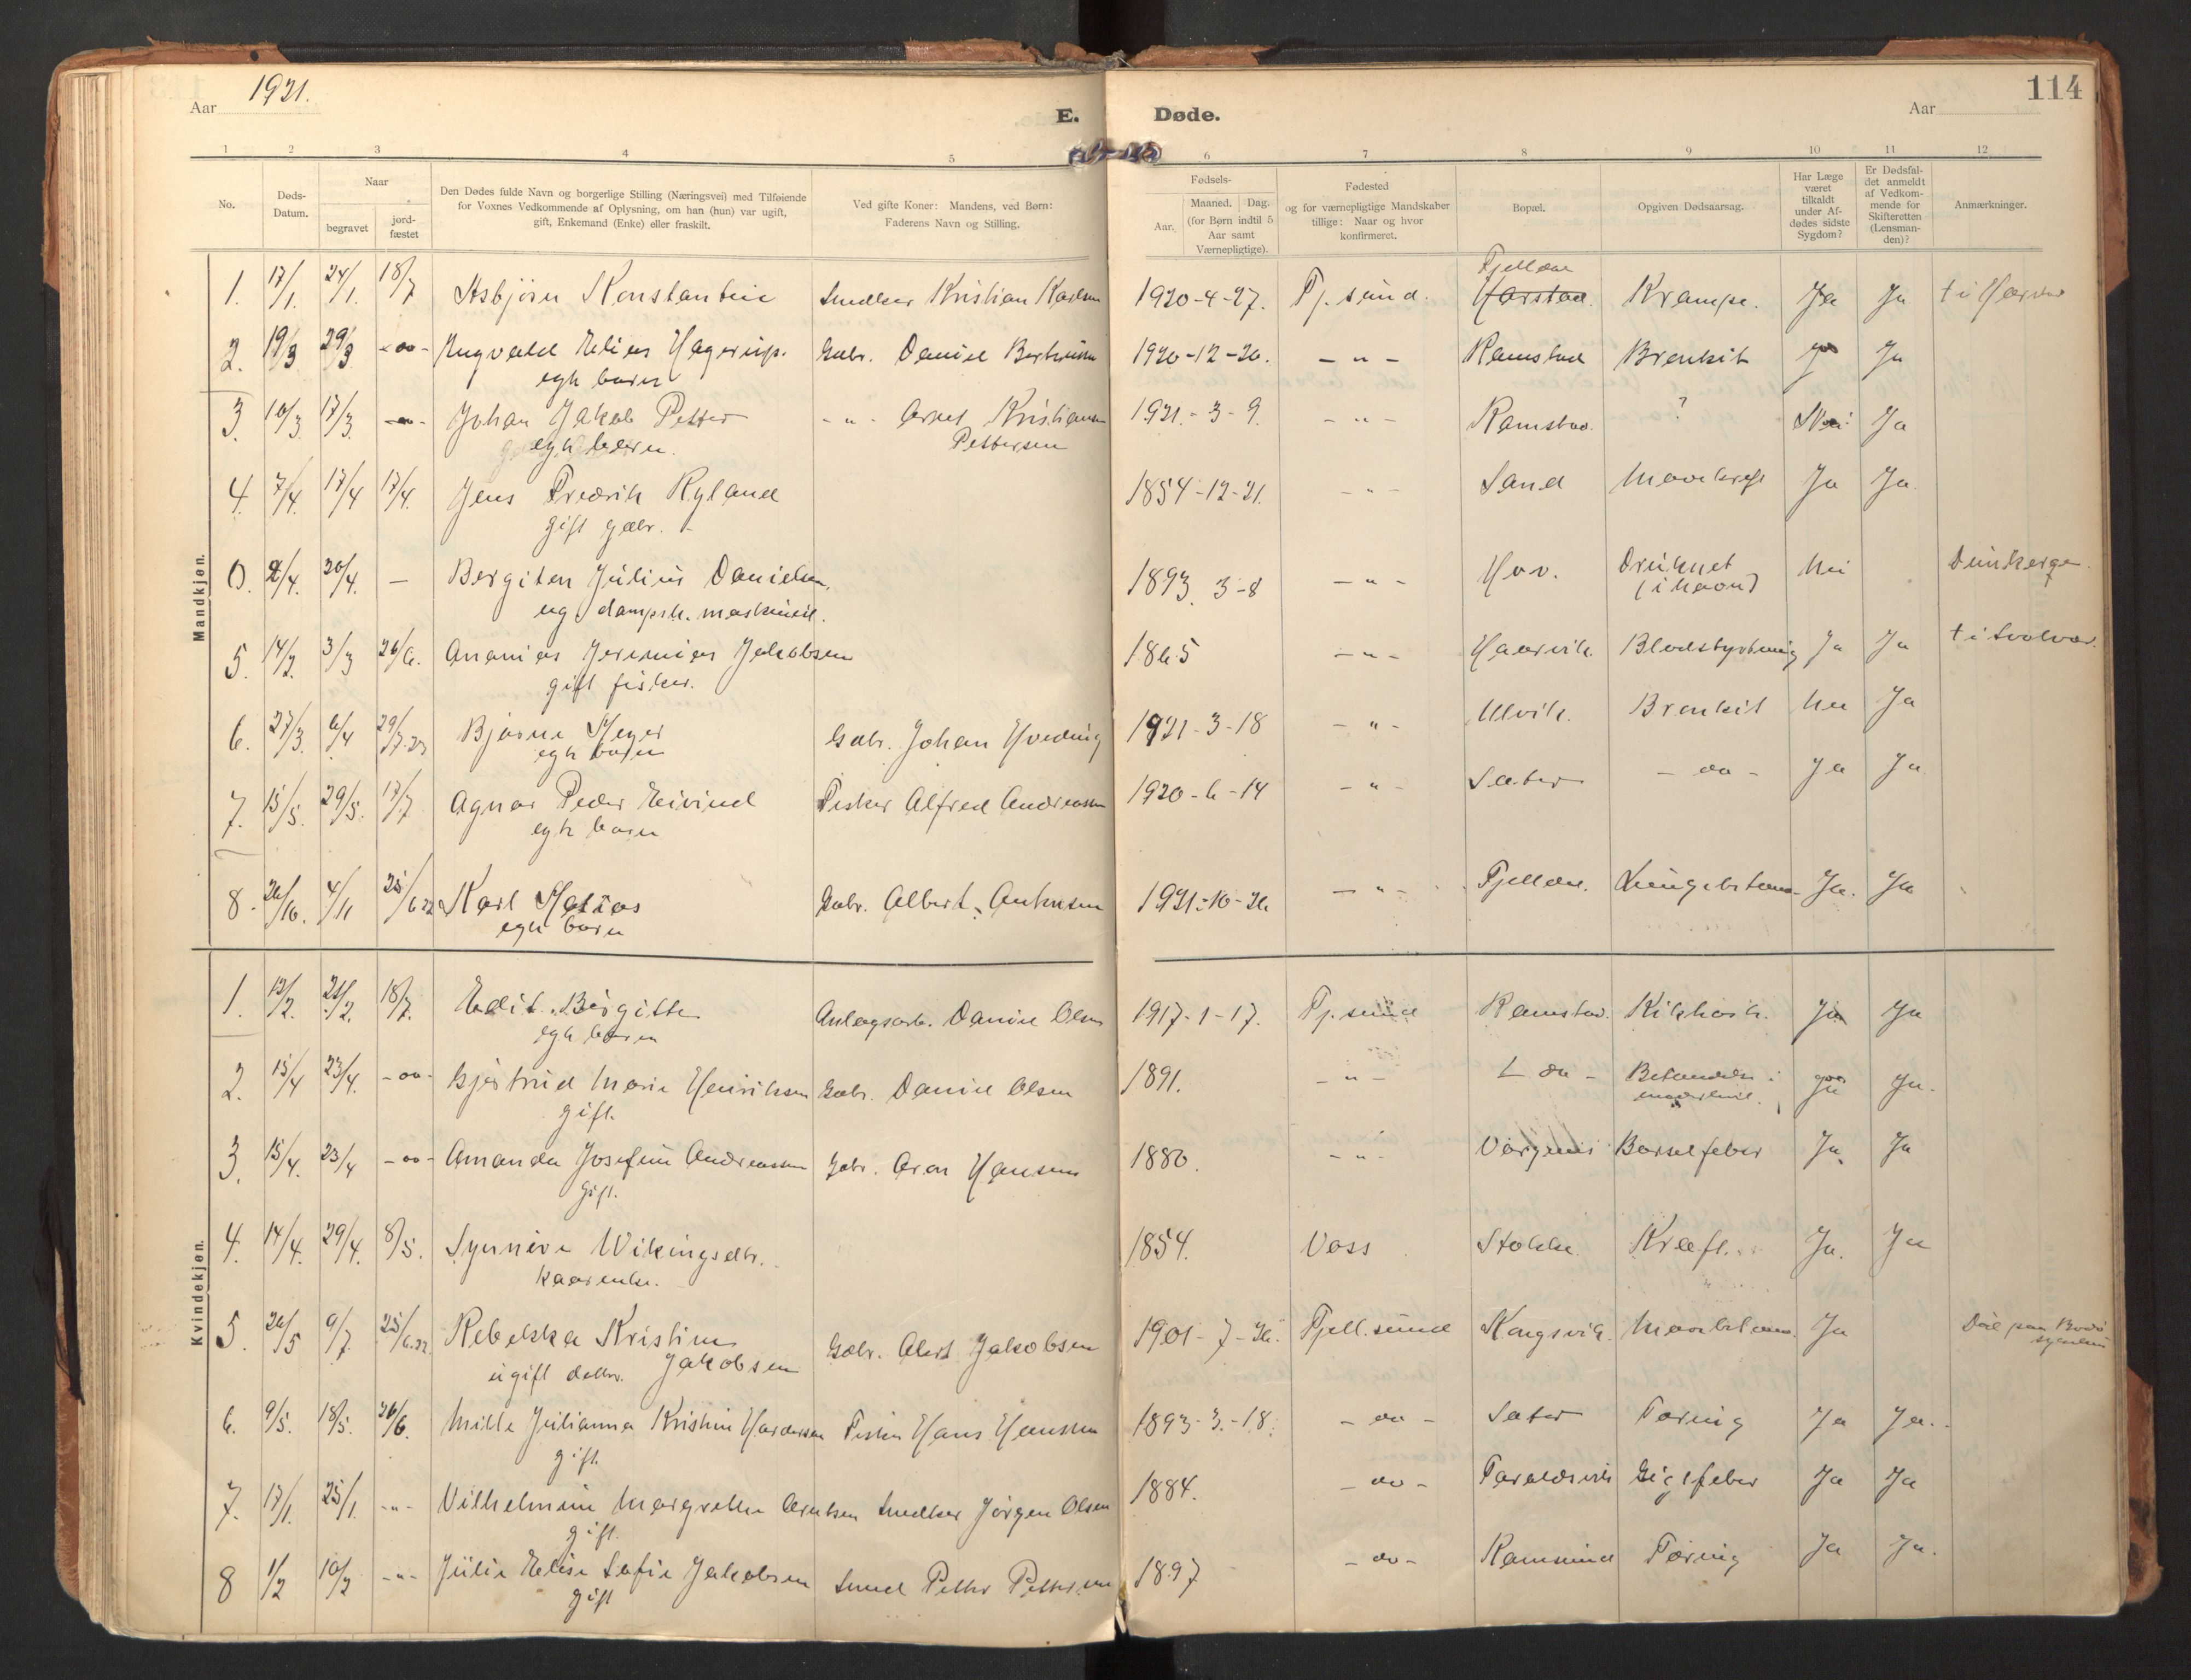 Aar 1921.
E.
Døde.
Aar
114
1 2 3 4 5 6 7 8 9 10 11 12
No.
Døds-Datum.
Naar
begravet
jord-fæstet
Den Dødes fulde Navn og borgerlige Stilling (Næringsvei) med Tilføiende
for Voxnes Vedkommende af Oplysning, om han (hun) var ugift,
gift, Enkemand (Enke) eller fraskilt.
Ved gifte Koner: Mandens, ved Børn:
Faderens Navn og Stilling.
Fødsels-
Aar.
Maaned. Dag.
(for Børn indtil 5
Aar samt
Værnepligtige).
Fødested
og for værnepligtige Mandskaber
tillige: Naar og hvor
konfirmeret.
Bopæl.
Opgiven Dødsaarsag.
Har Læge
været
tilkaldt
under Af-
dødes sidste
Sygdom?
Er Dødsfal-
det anmeldt
af Vedkom-
mende for
Skifteretten
(Lensman-
den)?
Anmærkninger.
Mandkjøn.
1. 17/1. 24/1. 18/7 Asbjörn Konstantin Smedker Kristian Karlsen 1920-4-27. Fj.sund. Fjelldal Harstad. Krampe. Ja Ja
2. 19/3 29/3 -oo- Elias Hagerup. Gbr. Daniel 1920-12-20. -"- Ramstad Bronkit Ja Ja
egte barn
3. 10/3 17/3. -oo- Johan Jakob Petter -"- Kristian 1921.-3-9. -"- Ramstad. ? Nei Ja
egte barn. Pettersen
4. 7/4. 17/4 17/4. Jens Fredrik Ryland 1854-12-21. -"- Sand Mavekreft Ja Ja
gift gbr.
0. 2/4. 20/4. - Bergiton Julius Danielsen. 1893. 3-8 -"- Hov. Druknet Nei Dünkerque.
ug dampsk. maskinist. (i havn)
5. 14/2. 3/3 26/6. Ananias Jeremias Jakobsen 1865 -"- Haarvik. Blodstyrtning Ja Ja † i Svolvær.
gift fisker.
6. 27/3. 6/4 29/7-23 Bjarne Meyer Gbr. Johan Hveding 1921-3-18 -"- Ulvik. Bronkit Nei Ja
egte barn
7. 15/5. 29/5. 17/7 Agnar Peder Eivind Fisker Alfred Andreassen 1920-6-14 -"- Sæter -oo- Ja Ja
egte barn
8. 26/10. 4/11 25/6.22 Karl Matias Gbr. Albert Antonsen 1921-10-26 -"- Fjelldal. Ja. Ja
egte barn
Kvindekjøn.
1. 12/2. 21/2. 18/7. Edit Birgitte Anlægsarb. Daniel Olsen 1917-1-17. Fj.sund Ramstad. Kikhoste. Ja Ja
egte barn
2. 15/4 23/4. -oo- Gjertrud Marie Henriksen Gbr. Daniel Olsen 1891. -"- -oo- Betændelse i Ja Ja.
gift.
3. 15/4. 23/4 -oo- Amanda Josefine Andreassen Gbr. Aron Hansen 1880. -"- Barselfeber Ja. Ja
Gift.
4. 14/4. 29/4. 8/5. Synneve Wikingsdtr. 1854. Voss Stokke. Kræft. Ja. Ja
kaarenke.
5. 26/5 9/7. 25/6.22 Rebekka Kristine Gbr. Jakobsen 1901-7-26. Fjell.sund Kongsvik. Ja
ugift datter. Jakobsen Död paa Bodö
6. 9/5. 18/5. 26/6. Mille Julianna Kristine Fisker Hans Hansen 1893-3.-18. -oo- Sæter Tæring Ja Ja.
gift.
7. 17/1. 25/1. -"- Vilhelmine Margrethe Arntsen Smedker Jörgen Olsen 1884. -oo- Taraldsvik Gigtfeber Ja Ja
gift.
8 1/2 10/2 -"- Julie Elise Sofie Jakobsen Smed Petter Pettersen 1897 -oo- Ramsund Tæring Ja Ja.
gift